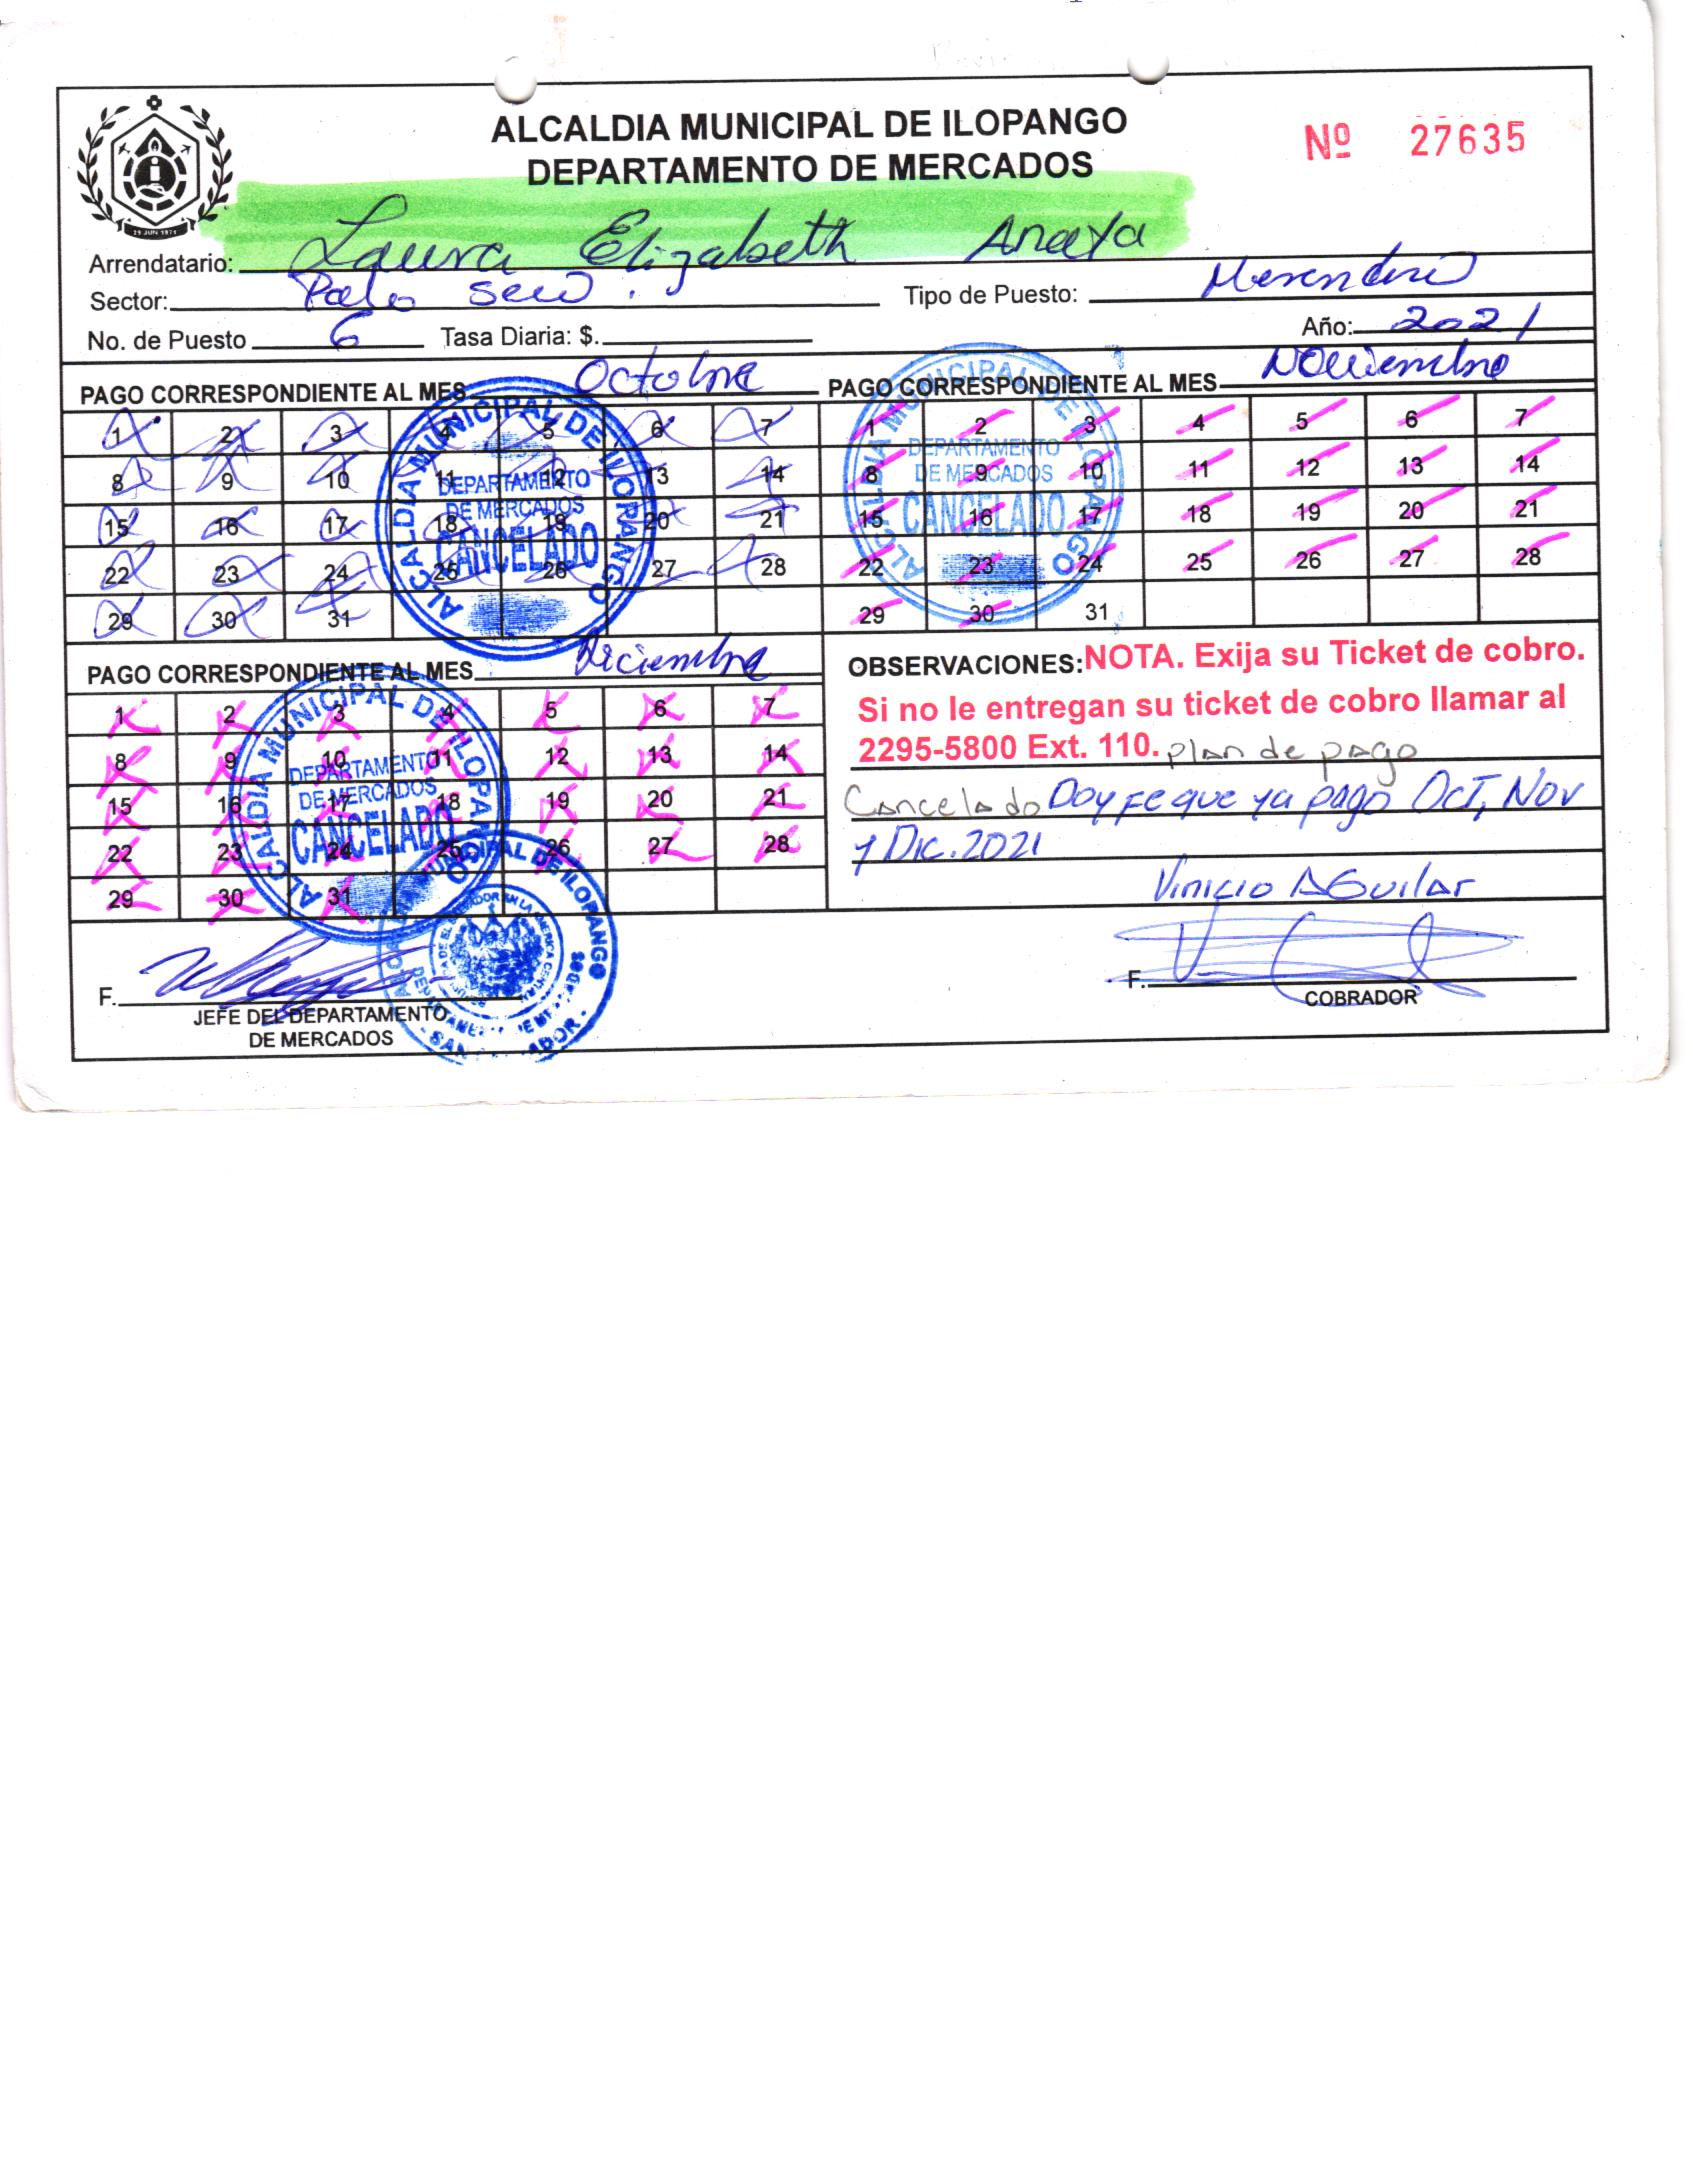 ALCALDIA MUNICIPAL DE ILOPANGO
DEPARTAMENTO DE MERCADOS
Nº 27635
29 JUN 1971
Arrendatario: Laura Elizabeth Anaya
Sector: Palo seco. Tipo de Puesto:
No. de Puesto 6 Tasa Diaria: $. Año: 2021
PAGO CORRESPONDIENTE AL MES Octubre
1 2 3 4 5 6 7
8 9 10 11 12 13 14
15 16 17 18 19 20 21
22 23 24 25 26 27 28
29 30 31
ALCALDIA MUNICIPAL DE ILOPANGO
DEPARTAMENTO
DE MERCADOS
CANCELADO
PAGO CORRESPONDIENTE AL MES Noviembre
1 2 3 4 5 6 7
8 9 10 11 12 13 14
15 16 17 18 19 20 21
22 23 24 25 26 27 28
29 30 31
ALCALDIA MUNICIPAL DE ILOPANGO
DEPARTAMENTO
DE MERCADOS
CANCELADO
PAGO CORRESPONDIENTE AL MES Diciembre
1 2 3 4 5 6 7
8 9 10 11 12 13 14
15 16 17 18 19 20 21
22 23 24 25 26 27 28
29 30 31
ALCALDIA MUNICIPAL DE ILOPANGO
DEPARTAMENTO
DE MERCADOS
CANCELADO
OBSERVACIONES: NOTA. Exija su Ticket de cobro.
Si no le entregan su ticket de cobro llamar al
2295-5800 Ext. 110. plan de pago
Cancelado Doy fe que ya pago Oct, Nov
y Dic. 2021
Vinicio Aguilar
F.
JEFE DEL DEPARTAMENTO
DE MERCADOS
F.
COBRADOR